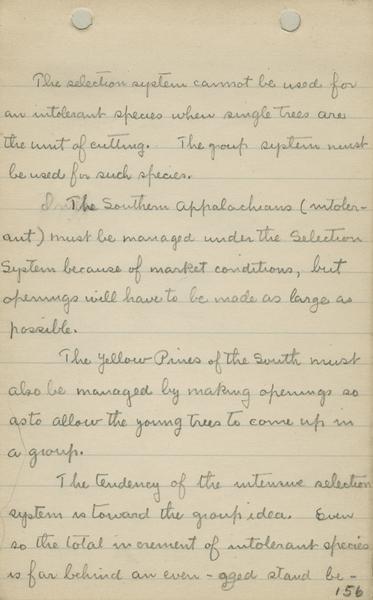 The selection system cannot be used for
an intolerant species when single trees are
the unit of cutting. The group system must
be used for such species.
In The Southern Appalachians (intoler-
ant) must be managed under the Selection
System because of market conditions, but
openings will have to be made as large as
possible.
The Yellow Pines of the South must
also be managed by making openings so
as to allow the young trees to come up in
a group.
The tendency of the intensive selection
system is toward the group idea. Even
so the total increment of intolerant species
is far behind an even-aged stand be-
156